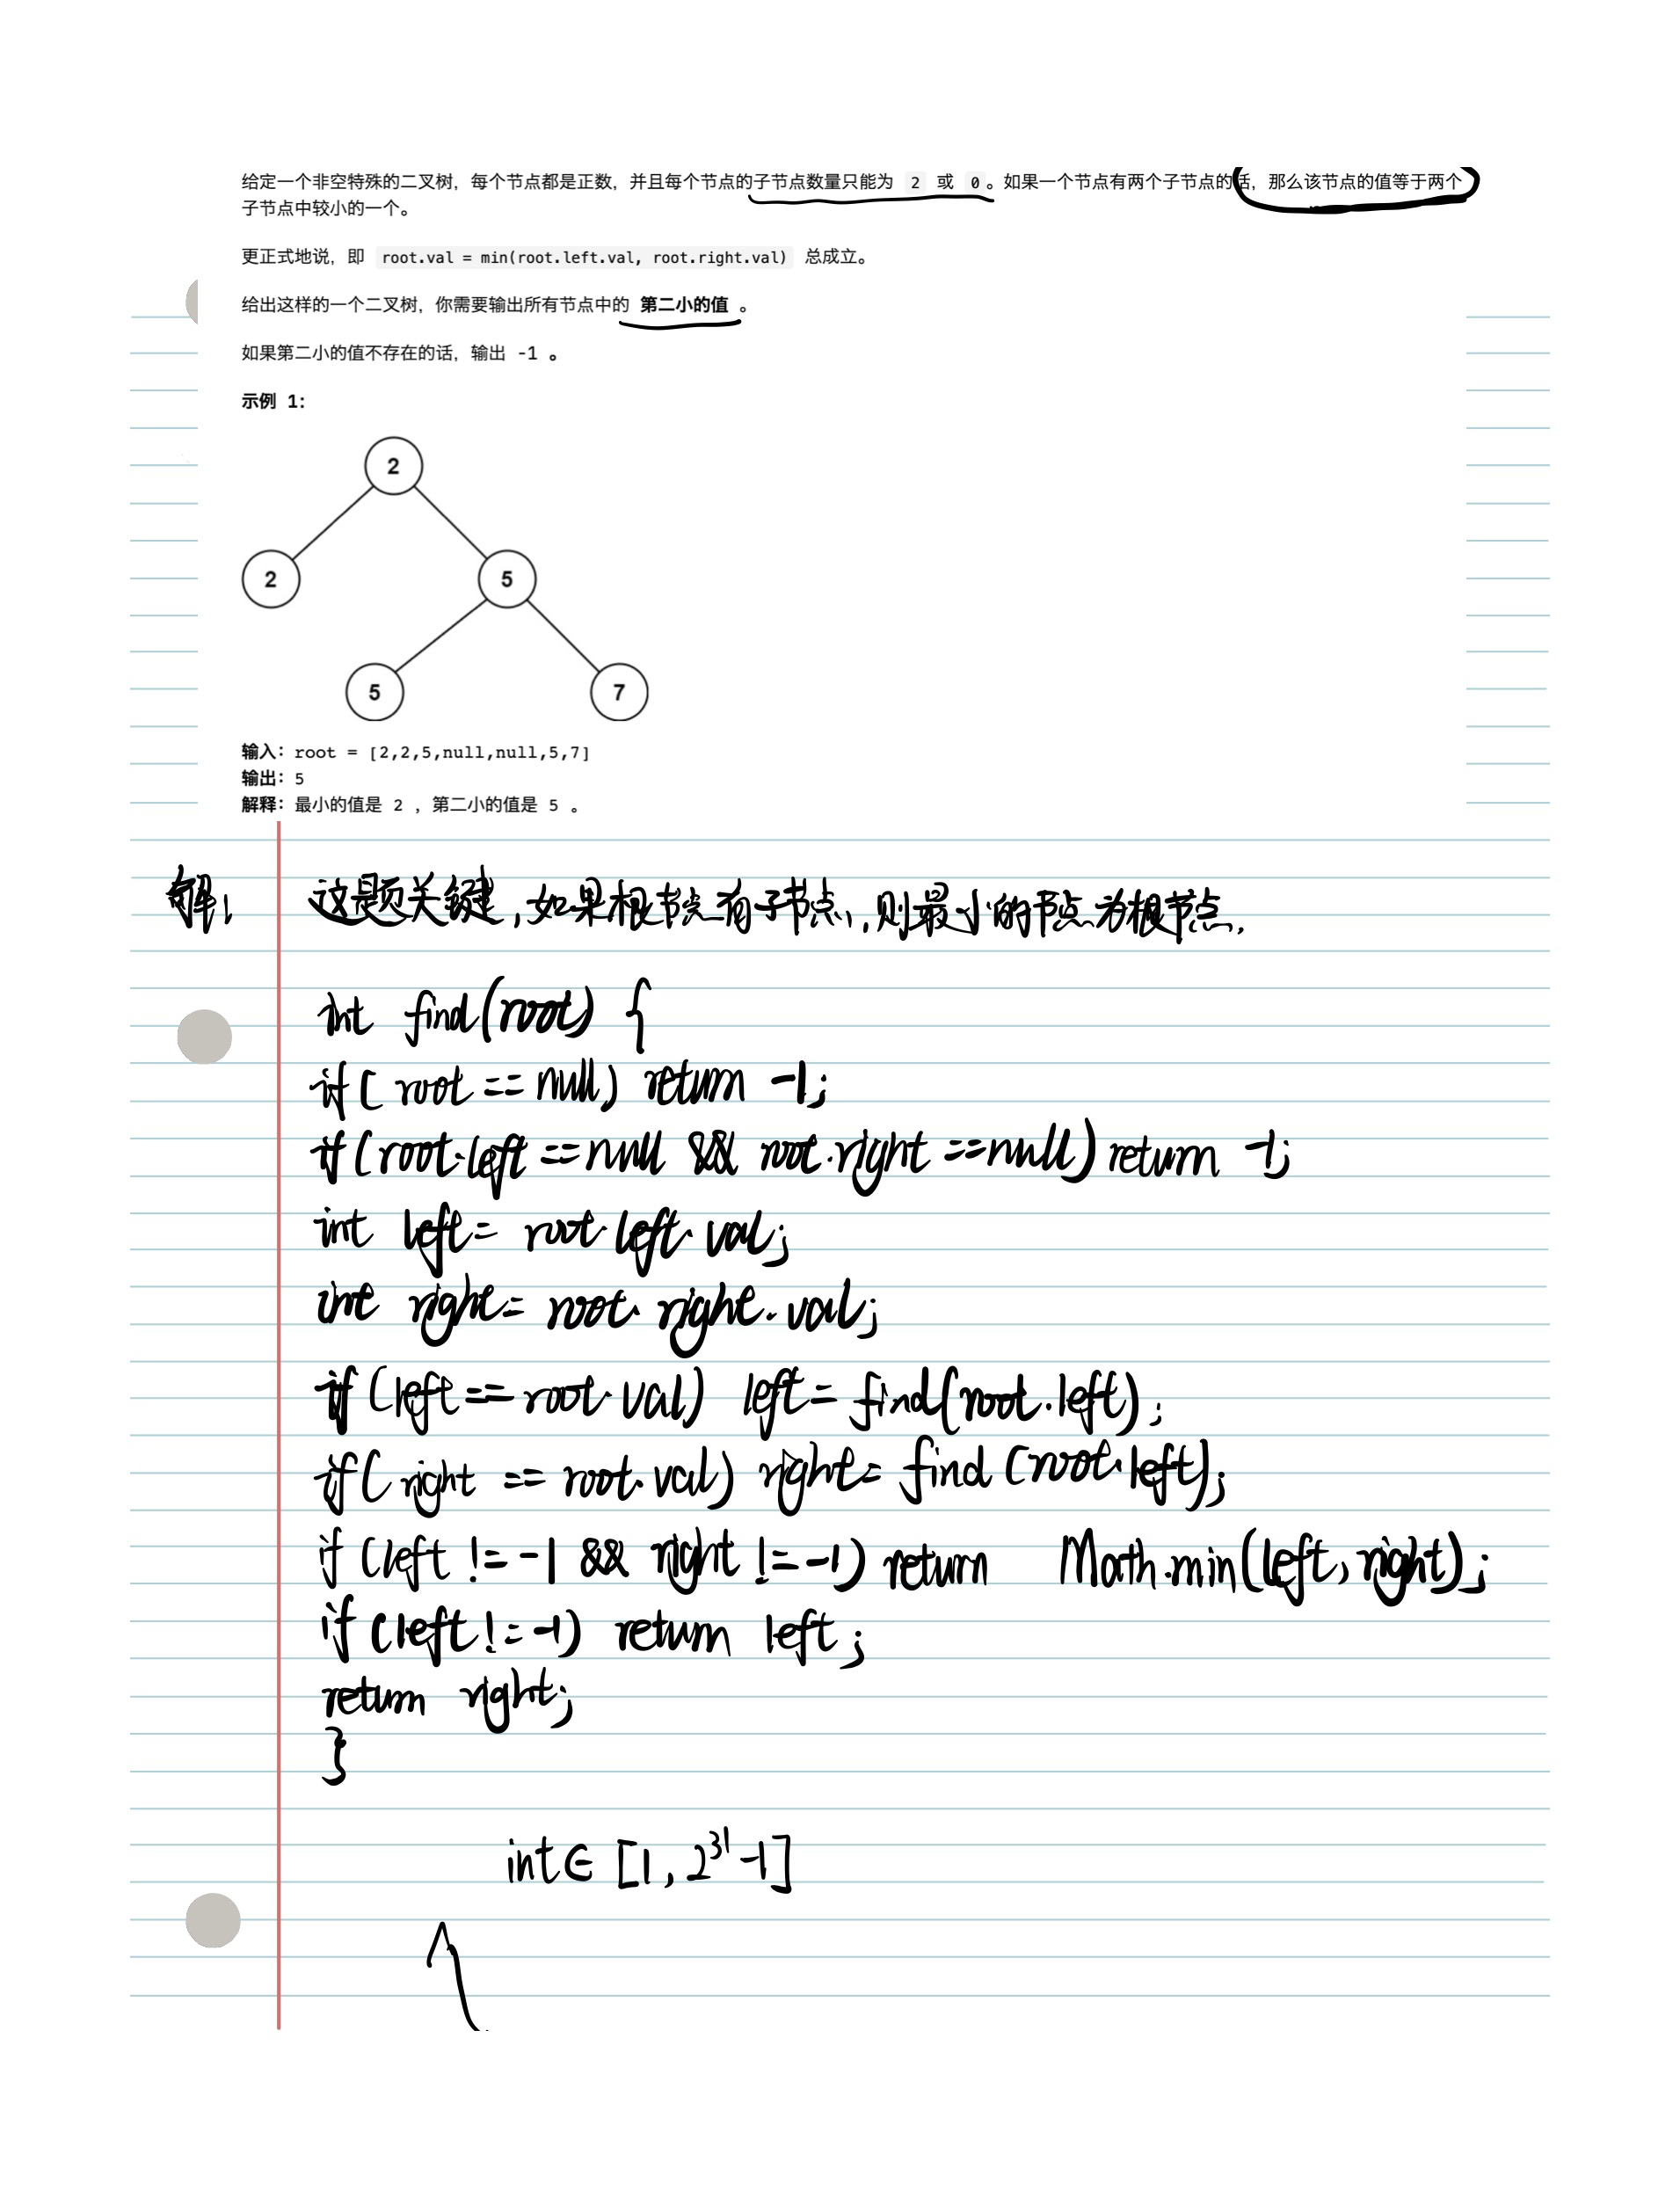 给定一个非空特殊的二叉树，每个节点都是正数，并且每个节点的子节点数量只能为 2 或 0。如果一个节点有两个子节点的话，那么该节点的值等于两个
子节点中较小的一个。
更正式地说，即 root.val = min(root.left.val, root.right.val) 总成立。
给出这样的一个二叉树，你需要输出所有节点中的 第二小的值 。
如果第二小的值不存在的话，输出 -1 。
示例 1：
2
2 5
5 7
输入：root = [2,2,5,null,null,5,7]
输出：5
解释：最小的值是 2 ，第二小的值是 5 。
解： 这题关键，如果根节点有子节点，则最小的节点为根节点.
int find(root) {
if( root == null) return -1;
if(root.left == null && root.right == null) return -1;
int left = root.left.val;
int right = root.right.val;
if (left == root.val) left = find(root.left);
if( right == root.val) right = find (root.left);
if (left != -1 && right != -1) return Math.min(left, right);
if (left != -1) return left;
return right;
}
int ∈ [1, 2³¹ -1]